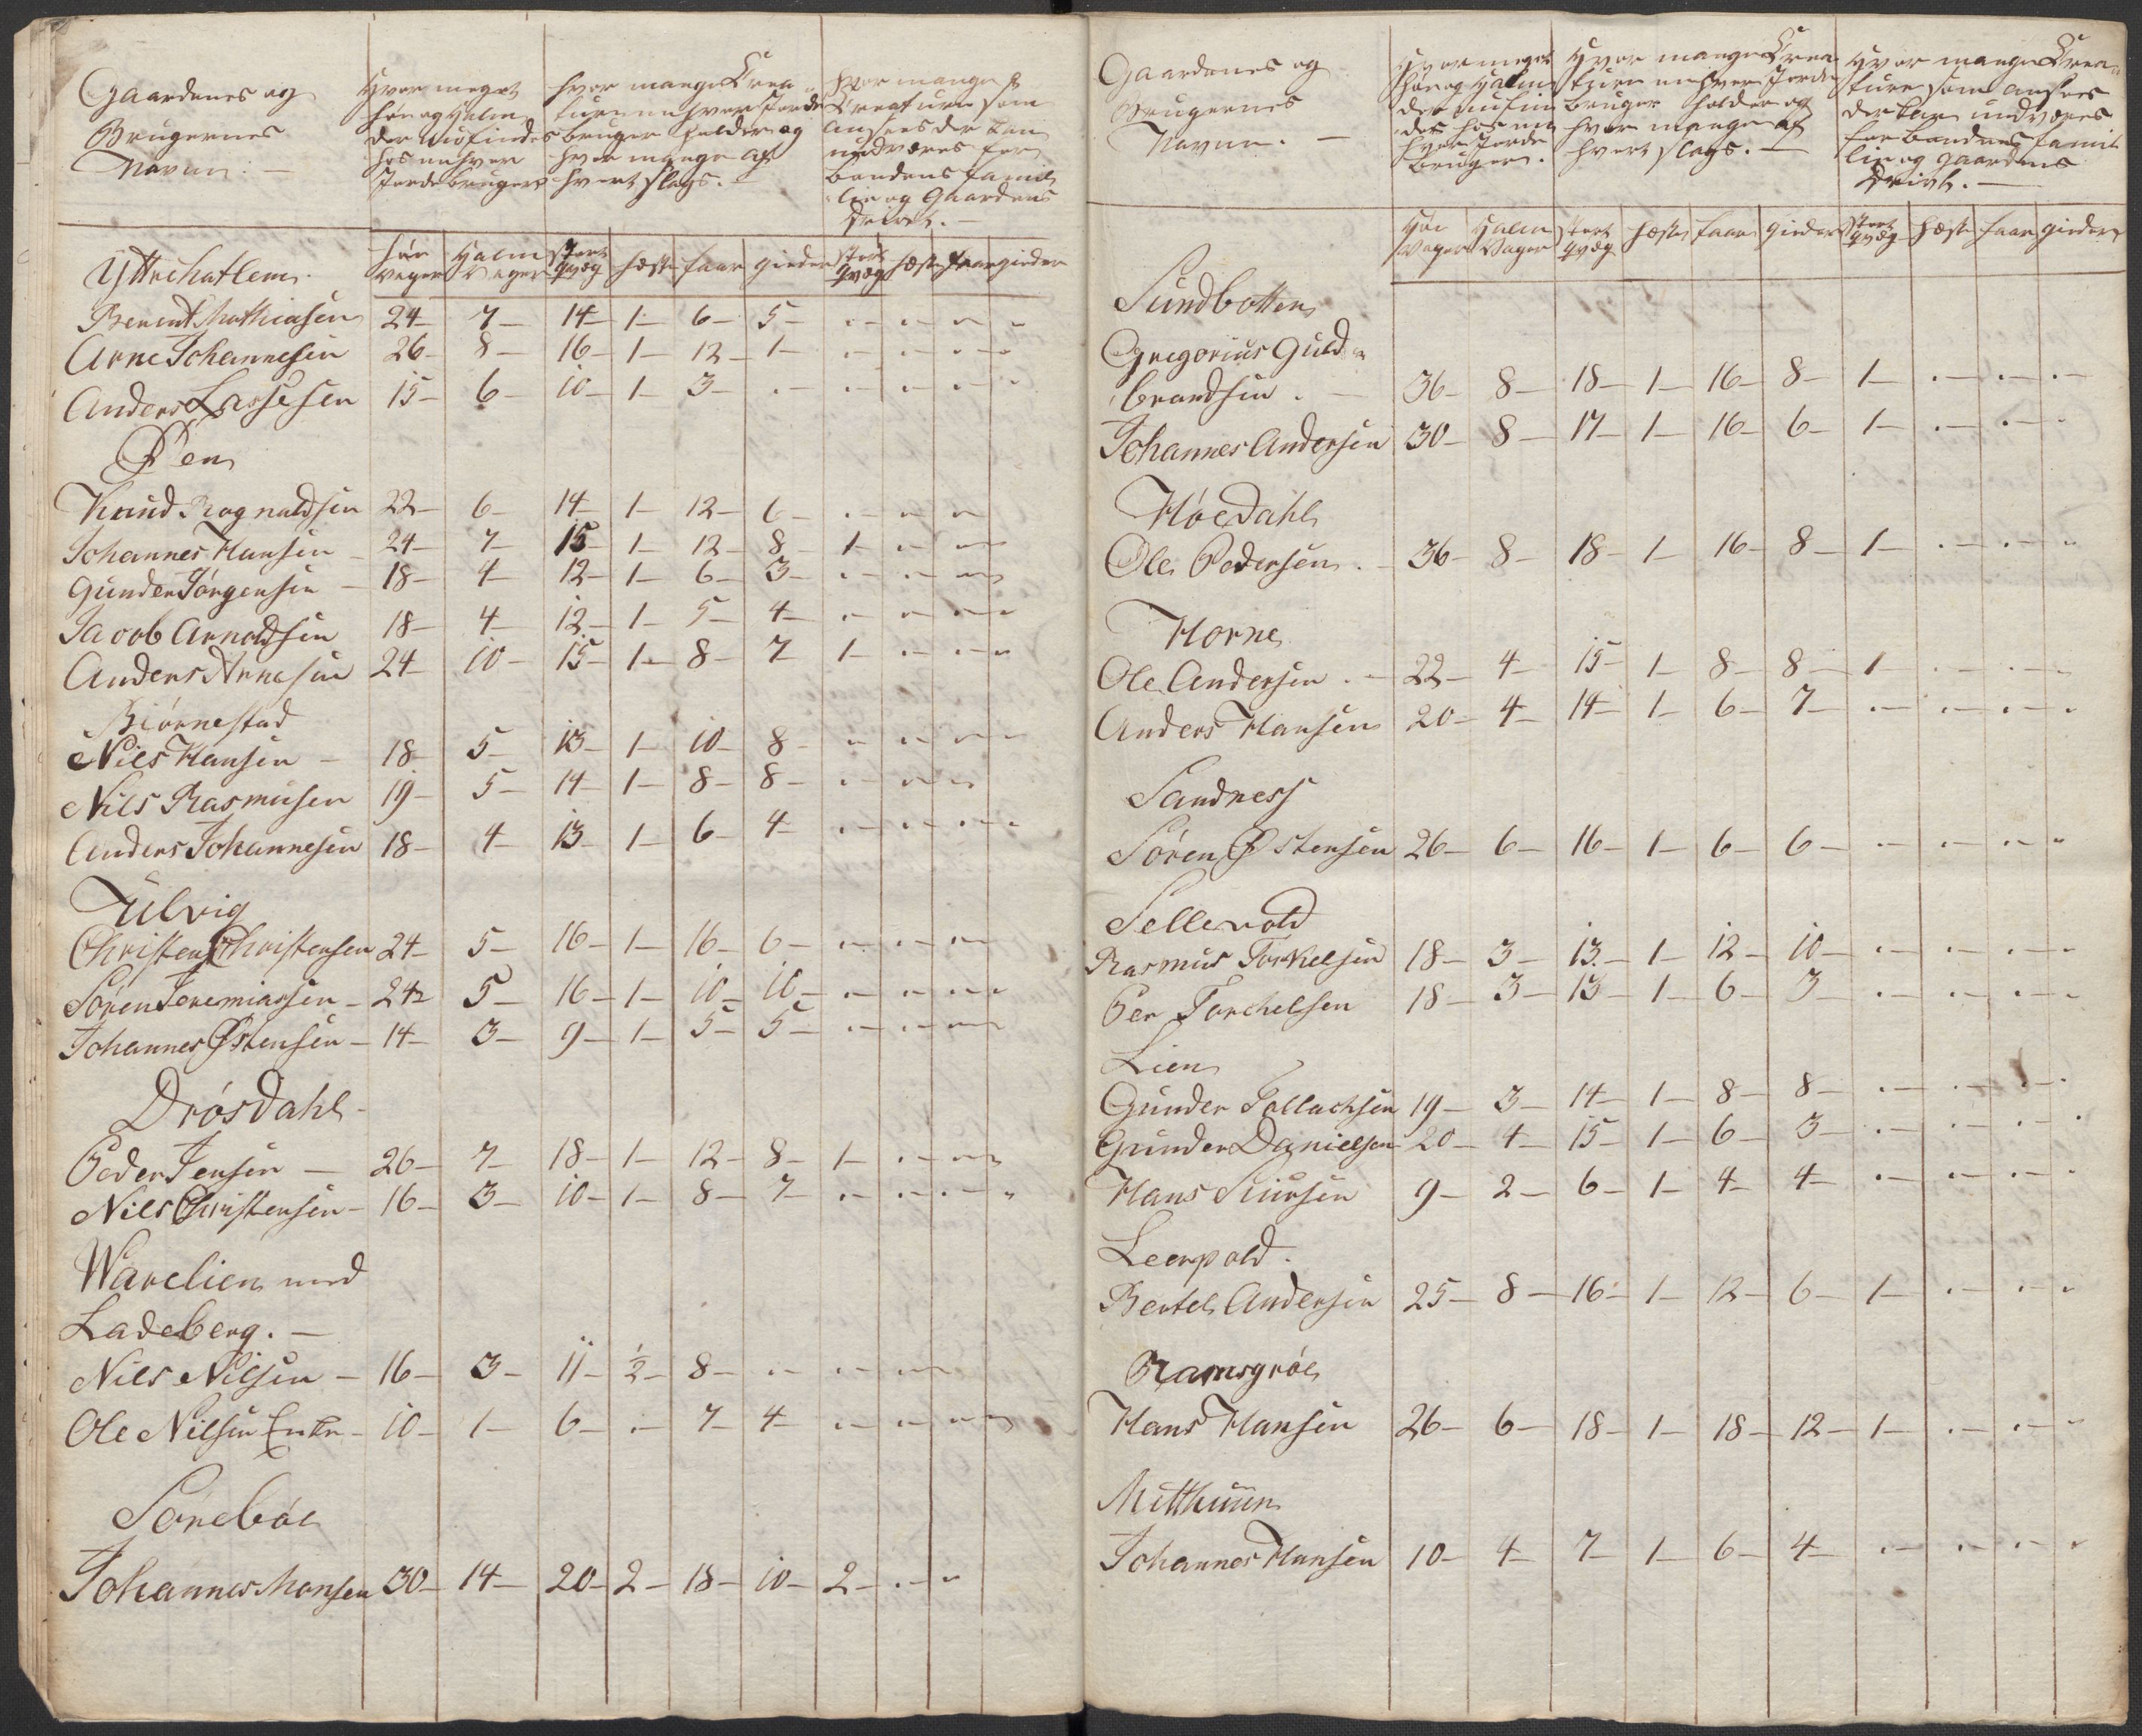 Gaardenes og
Brugernes
Navne. —
Hvor meget
høe og Halm
der nu findes
hos enhver
Jordebruger
hvor mange Crea-
turer enhver Jorde
bruger holder og
hvor mange af
hvert slags. —
hvor mange
Creaturer som
ansees der kan
undværes for
bondens famil
lie og Gaardens
Drivt. —
høe Vaager Halm Vaager Stort qvæg heste faar gieder Stort qvæg heste faar gieder
Yttrehatlem.
Berendt Mathiasen 24 — 7 — 14 — 1 — 6 — 5 — .. — .. — .. — ..
Arne Johannesen 26 — 8 — 16 — 1 — 12 — 1 — .. — .. — .. — ..
Anders Lassesen 15 — 6 — 10 — 1 — 3 — .. — .. — .. — .. — ..
Øen
Knud Rognaldsen 22 — 6 — 14 — 1 — 12 — 6 — .. — .. — ..
Johannes Hansen — 24 — 7 — 15 — 1 — 12 — 8 1 — .. — .. — ..
Gunder Jørgensen — 18 — 4 — 12 — 1 — 6 — 3 — .. — .. — ..
Jacob Arnoldsen 18 — 4 — 12 — 1 — 5 — 4 — .. — .. — .. — ..
Anders Arnesen 24 — 10 — 15 — 1 — 8 — 7 1 — .. — .. — ..
Biørnestad
Nils Hansen — 18 — 5 — 13 — 1 — 10 — 8 — .. — .. — .. — ..
Nils Rasmusen 19 — 5 — 14 — 1 — 8 — 8 — .. — .. — ..
Anders Johannesen 18 — 4 — 13 — 1 — 6 — 4 — .. — .. — .. — ..
Tulvig
Christen Christensen 24 — 5 — 16 — 1 — 16 — 6 — .. — .. — ..
Søren Jeremiassen — 24 — 5 — 16 — 1 — 10 — 10 — .. — .. — .. — ..
Johannes Østensen — 14 — 3 — 9 — 1 — 5 — 5 — .. — .. — ..
Drøsdahl
Peder Jensen — 26 — 7 — 18 — 1 — 12 — 8 — 1 — .. — .. — ..
Nils Christensen — 16 — 3 — 10 — 1 — 8 — 7 — .. — .. — .. — ..
Warelien med
Ladeberg. —
Nils Nilsen — 16 — 3 — 11 — ½ — 8 — .. — .. — .. — ..
Ole Nilsen Enke — 10 — 1 — 6 — .. — 7 — 4 — .. — .. — .. — ..
Sørebøe
Johannes Monsen 30 — 14 — 20 — 2 — 18 — 10 — 2 — .. — ..
Gaardenes og
Brugernes
Navne. —
Hvor meget
høe og Halm
der nu fin
des hos en
hver Jorde
bruger.
Hvor mange Crea
turer enhver Jorde
bruger holder og
hvor mange af
hvert slags. —
Hvor mange Crea-
turer som ansees
der kan undværes
for bondens famil
lie og gaardens
Drivt. —
Høe Vaager Halm Vaager Stort qvæg heste faar gieder Stort qvæg heste faar gieder
Sundbotten
Gregorius Guld-
brandsen. — 36 — 8 — 18 — 1 — 16 — 8 — 1 — .. — .. — ..
Johannes Andersen 30 — 8 — 17 — 1 — 16 — 6 — 1 — .. — .. — ..
Høedahl
Ole Pedersen. — 36 — 8 — 18 — 1 — 16 — 8 — 1 — .. — .. — ..
Horne
Ole Andersen. — 22 — 4 — 15 — 1 — 8 — 8 — 1 — .. — .. — ..
Anders Hansen 20 — 4 — 14 — 1 — 6 — 7 — .. — .. — .. — ..
Sandness
Søren Østensen 26 — 6 — 16 — 1 — 6 — 6 — .. — .. — .. — ..
Sellevold
Rasmus Torkelsen 18 — 3 — 13 — 1 — 12 — 10 — .. — .. — .. — ..
Per Torchelsen 18 — 3 — 13 — 1 — 6 — 3 — .. — .. — .. — ..
Lien
Gunder Tollachsen 19 — 3 — 14 — 1 — 8 — 8 — .. — .. — .. — ..
Gunder Danielsen 20 — 4 — 15 — 1 — 6 — 3 — .. — .. — .. — ..
Hans Siursen 9 — 2 — 6 — 1 — 4 — 4 — .. — .. — .. — ..
Leerpold.
Bertel Andersen 25 — 8 — 16 — 1 — 12 — 6 — 1 — .. — .. — ..
Ramsgrøe
Hans Hansen 26 — 6 — 18 — 1 — 18 — 12 — 1 — .. — .. — ..
Mitthuun
Johannes Hansen 10 — 4 — 7 — 1 — 6 — 4 — .. — .. — .. — ..